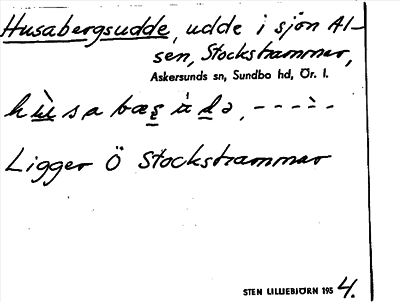 Husabergsudde, udde i sjön Al-
sen, Stockstrammar,
Askersunds sn, Sundbo hd, Ör. l.
Ligger Ö Stockstrammar
STEN LILLIEBJÖRN 1954.